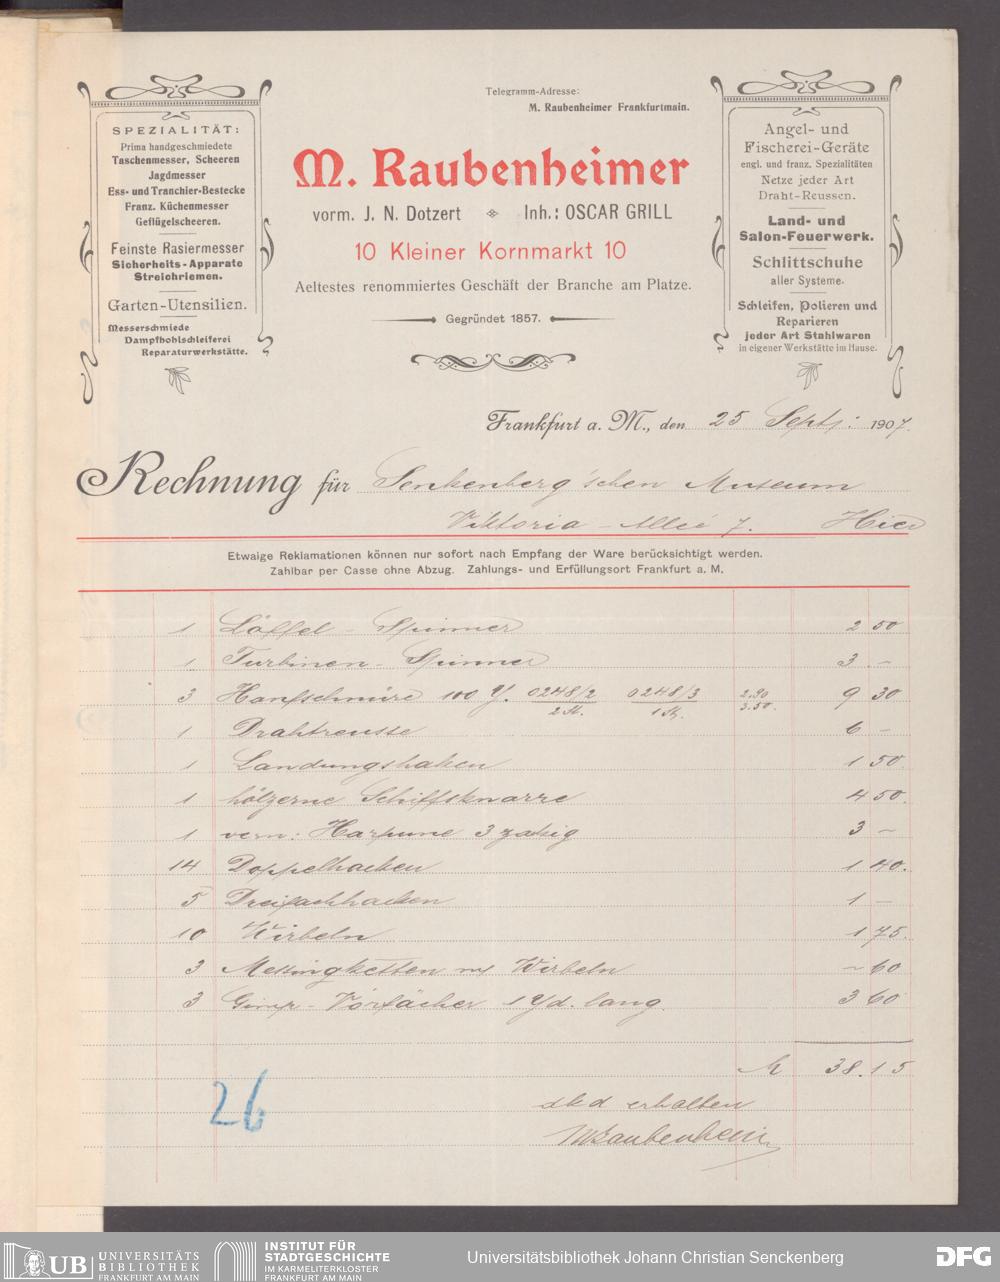 SPEZIALITÄT:
Prima handgeschmiedete
Taschenmesser, Scheeren
Jagdmesser
Ess- und Tranchier-Bestecke
Franz. Küchenmesser
Geflügelscheeren.
Feinste Rasiermesser
Sicherheits-Apparate
Streichriemen.
Garten-Utensilien.
Messerschmiede
Dampfhohlschleiferei
Reparaturwerkstätte.
Telegramm-Adresse:
M. Raubenheimer Frankfurtmain.
M. Raubenheimer
vorm. J. N. Dotzert Inh.: OSCAR GRILL
10 Kleiner Kornmarkt 10
Aeltestes renommiertes Geschäft der Branche am Platze.
Gegründet 1857.
Angel- und
Fischerei-Geräte
engl. und franz. Spezialitäten
Netze jeder Art
Draht-Reussen.
Land- und
Salon-Feuerwerk.
Schlittschuhe
aller Systeme.
Schleifen, Polieren und
Reparieren
jeder Art Stahlwaren
in eigener Werkstätte im Hause.
Frankfurt a. M., den 25 Sept: 1907.
Rechnung für Senkenberg'schen Museum
Viktoria-Allee 7. Hier
Etwaige Reklamationen können nur sofort nach Empfang der Ware berücksichtigt werden.
Zahlbar per Casse ohne Abzug. Zahlungs- und Erfüllungsort Frankfurt a. M.
1 Löffel-Spinner 2 50
1 Turbinen-Spinner 3.–
3 Hanfschnüre 100 Y. 0248/2 0248/3 2.90 9 30
2 St. 1 St. 3.50.
1 Drahtreusse 6 –
1 Landungshaken 1 50.
1 hölzerne Schiffsknarre 4 50.
1 vern: Harpune 3 zakig 3 –
14 Doppelhacken 1 40.
5 Dreifachhacken 1 –
10 Wirbeln 1 75.
3 Messingketten m/ Wirbeln – 60
3 Gimp-Vorfächer 1 Yd. lang. 3 60
M 38.15
26
erhalten
MRaubenheim
UB UNIVERSITÄTS
BIBLIOTHEK
FRANKFURT AM MAIN
INSTITUT FÜR
STADTGESCHICHTE
IM KARMELITERKLOSTER
FRANKFURT AM MAIN
Universitätsbibliothek Johann Christian Senckenberg
DFG